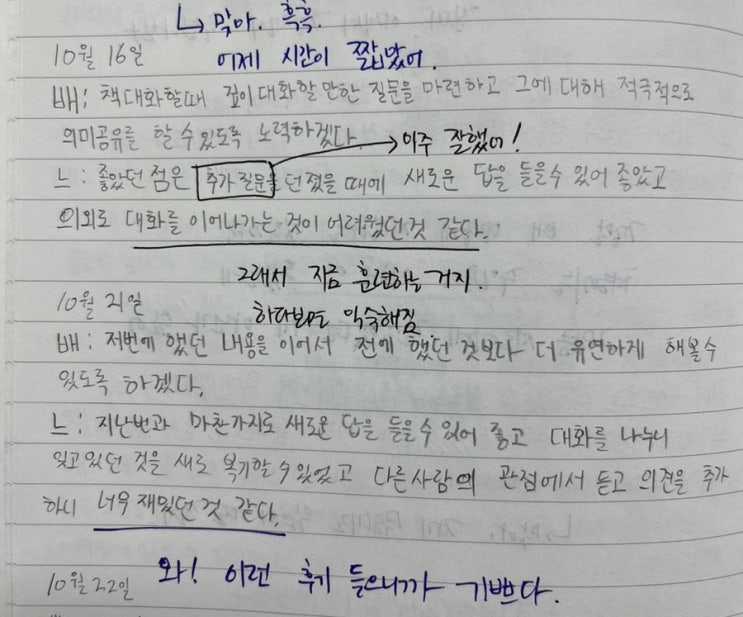 ↳ 맞아. 흑흑.
10월 16일 어제 시간이 짧았어.
배: 책대화할때 깊이대화할만한 질문을 마련하고 그에대해 적극적으로
의미공유를 할 수 있도록 노력하겠다.
→아주 잘했어!
느: 좋았던 점은 추가질문을 던졌을 때에 새로운 답을 들을수 있어 좋았고
의외로 대화를 이어나가는 것이 어려웠던것 같다.
그래서 지금 훈련하는 거지.
10월 21일 하다보면 익숙해짐
배: 저번에 했던 내용을 이어서 전에 했던 것보다 더 유연하게 해볼수
있도록 하겠다.
느: 지난번과 마찬가지로 새로운 답을 들을수 있어 좋고 대화를 나누니
잊고있던 것을 새로 복기할 수 있었고 다른사람의 관점에서 듣고 의견을 추가
하니 너무 재밌던 것 같다.
10월 22일 와! 이런 후기 들으니까 기쁘다.